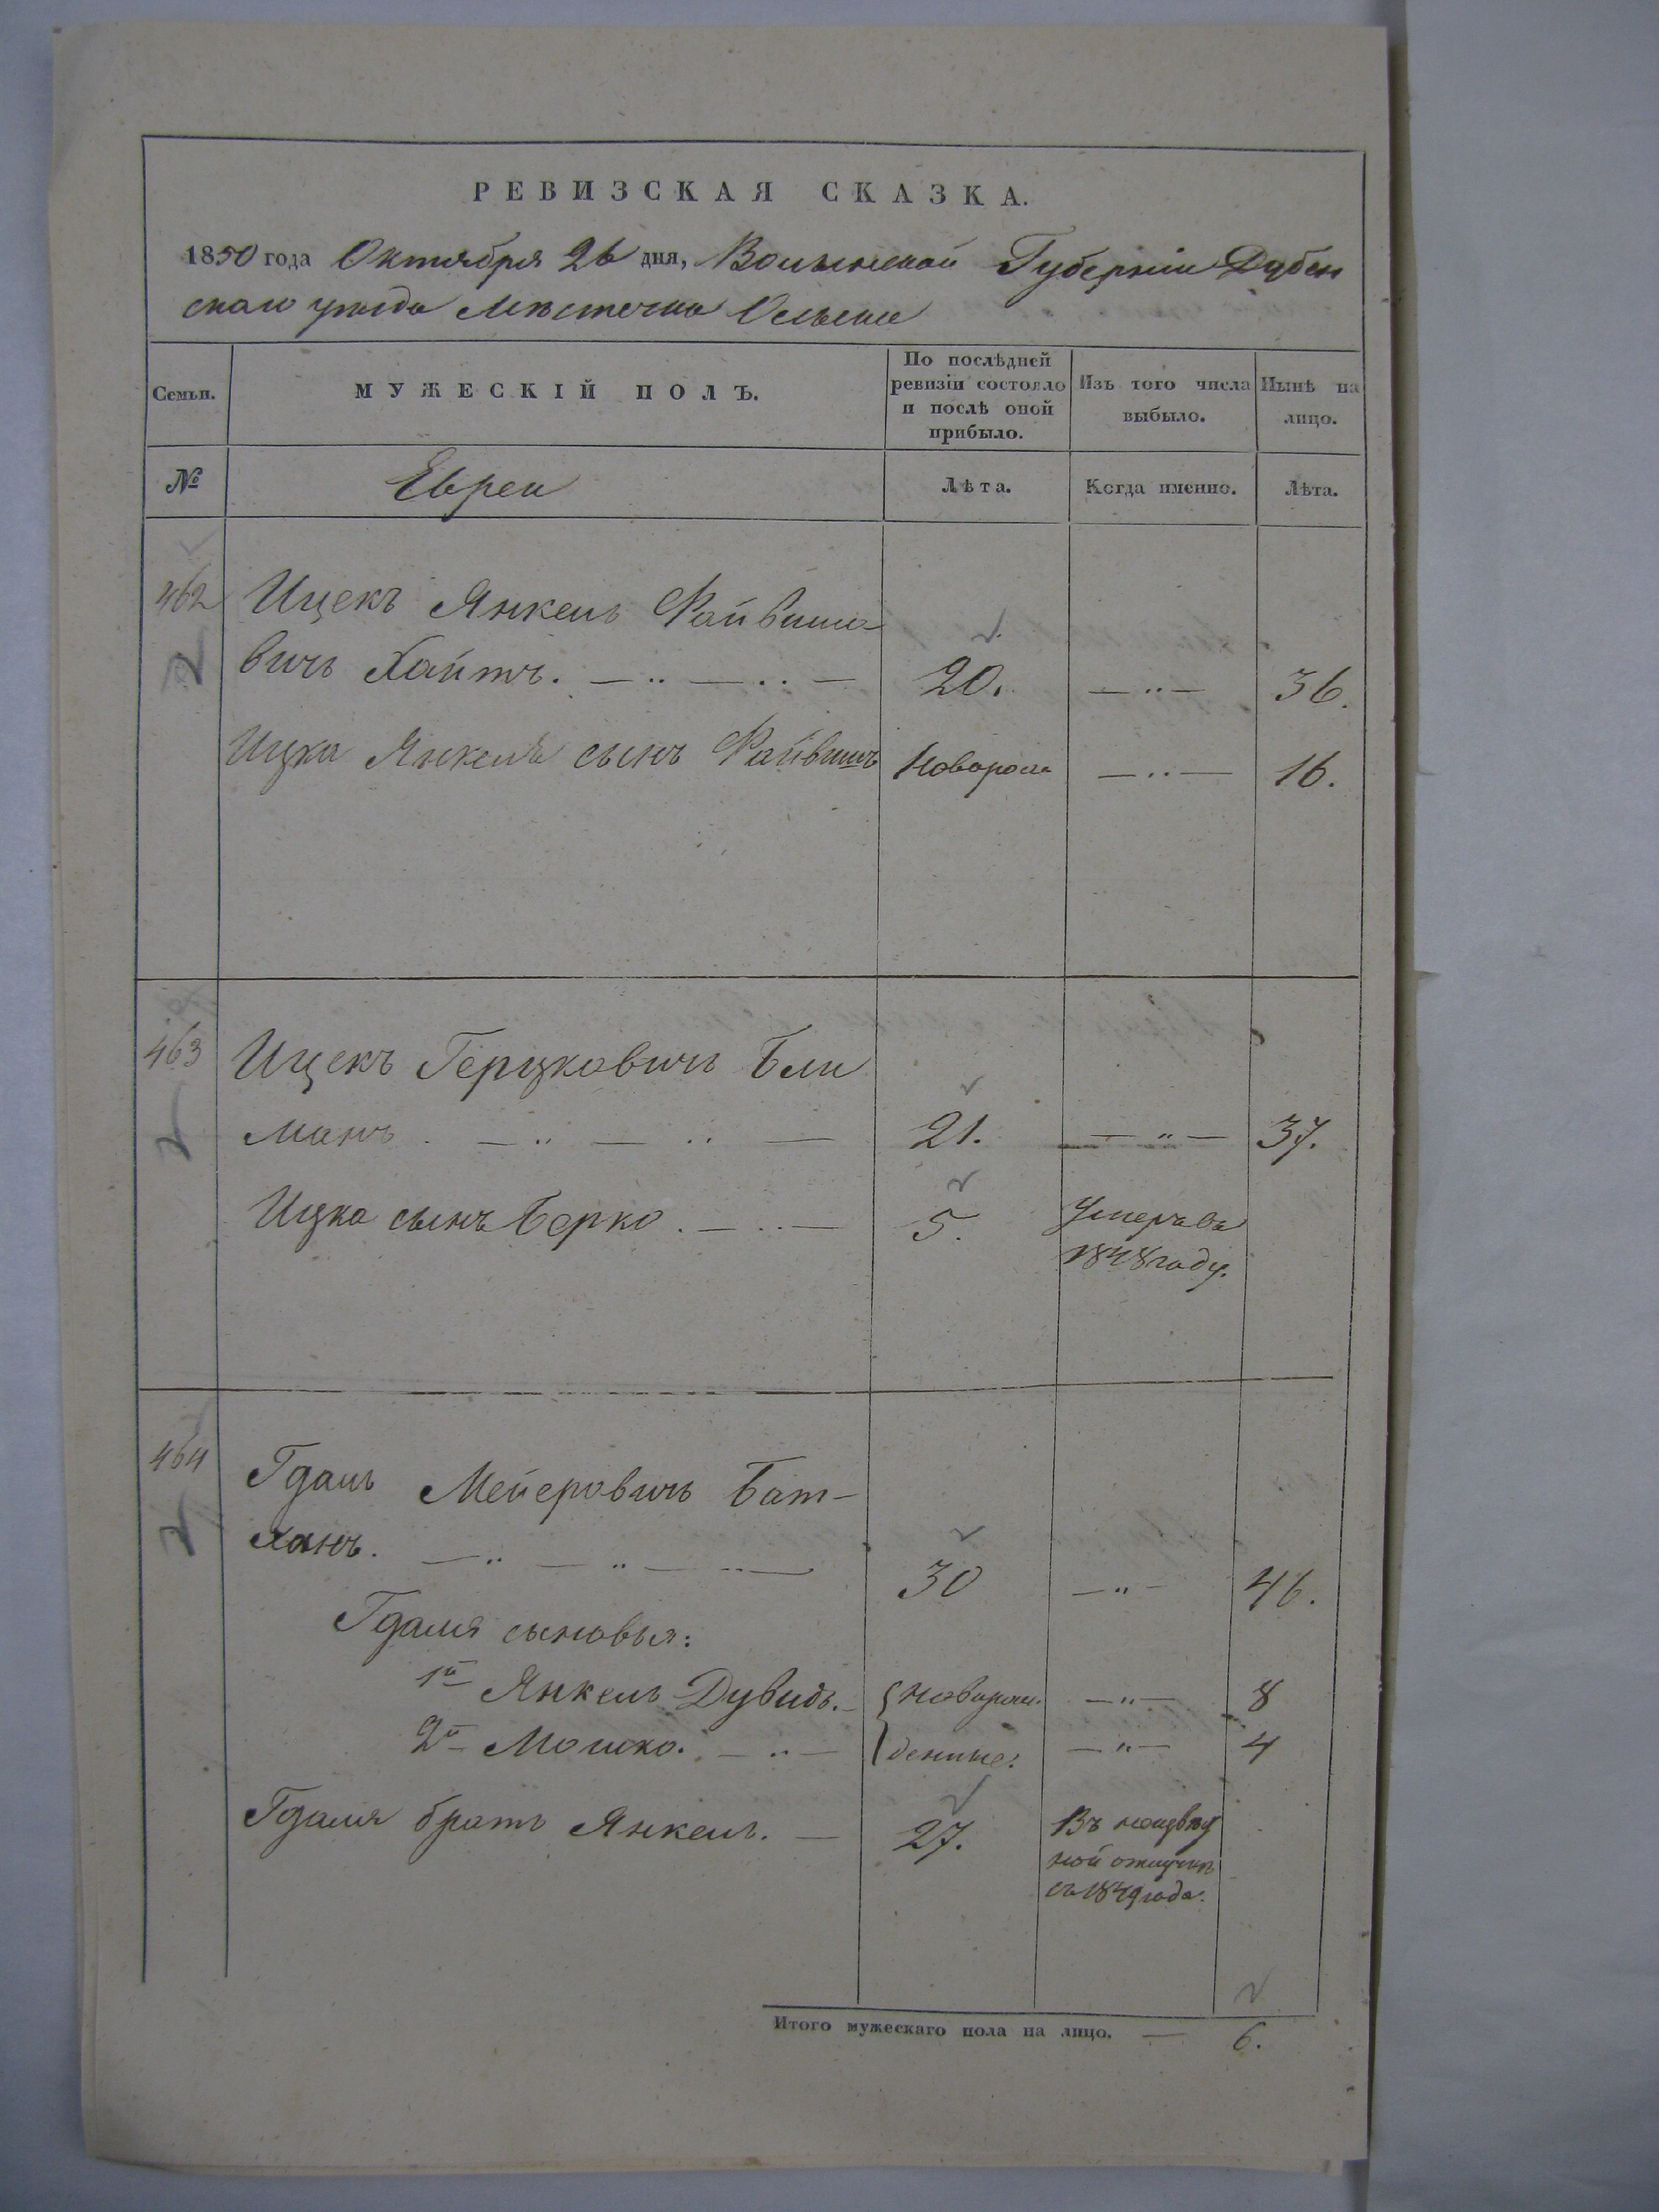 РЕВИЗСКАЯ СКАЗКА.
1850 года Октября 26 дня, Волынской Губерніи Дубен
скаго уезда Местечка
Семьи. МУЖЕСКІЙ ПОЛЪ. По послѣдней ревизіи состояло и послѣ оной прибыло. Изъ того числа выбыло. Нынѣ на лицо.
№ Евреи Лѣта. Когда именно. Лѣта.
462 Ицекъ Янкель Файвишо-
вичъ Хайтъ. 20. 36.
Ицка Янкеля сынъ Файвишъ Новорож 16.
463 Ицекъ Герцковичъ Бли
манъ. 21. 37.
Ицка сынъ Берко. 5. Умеръ въ
1848 году.
464 Гдаль Мейеровичъ Бат-
ханъ. 30 46.
Гдаля сыновья:
1й Янкель Дувидъ. новорож. 8
2й Мошко. денные. 4
Гдаля братъ Янкель. 27. Въ неизвѣст
ной отлучкѣ
съ 1849 года.
Итого мужескаго пола на лицо. 6.